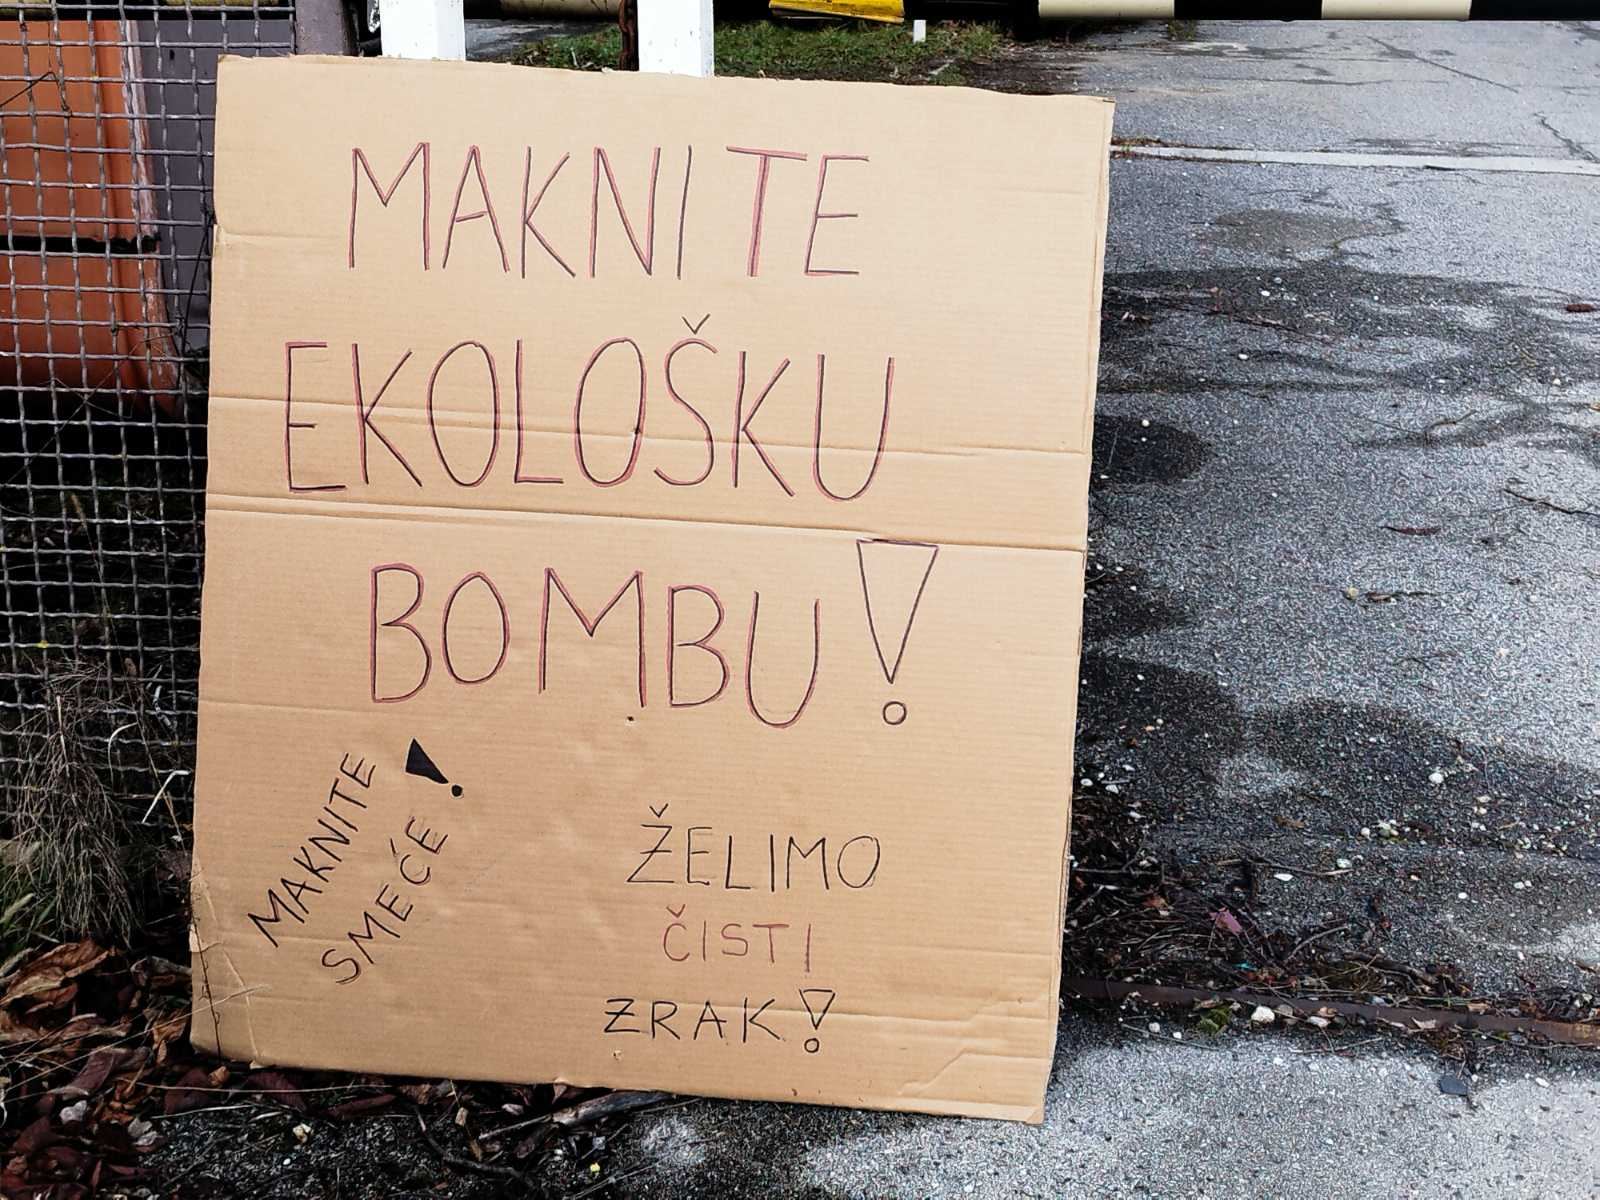 MAKNITE
EKOLOŠKU
BOMBU!
MAKNITE
SMEĆE!
ŽELIMO
ČISTI
ZRAK!